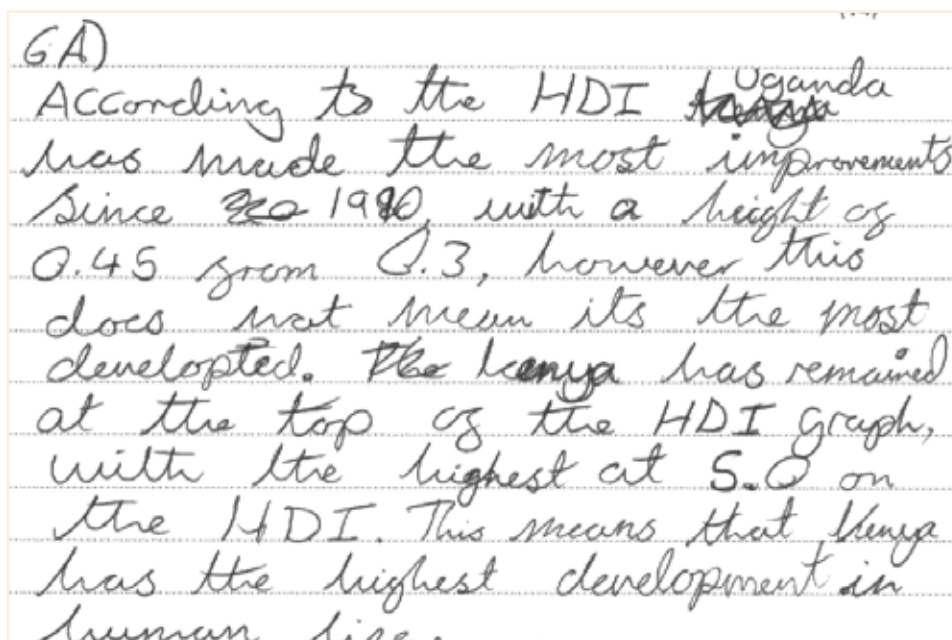 6A)
According to the HDI Uganda
has made the most improvements
since 1990, with a height of
0.45 from 0.3, however this
does not mean its the most
developted. Kenya has remained
at the top of the HDI graph,
with the highest at 5.0 on
the HDI. This means that Kenya
has the highest development in
human life.